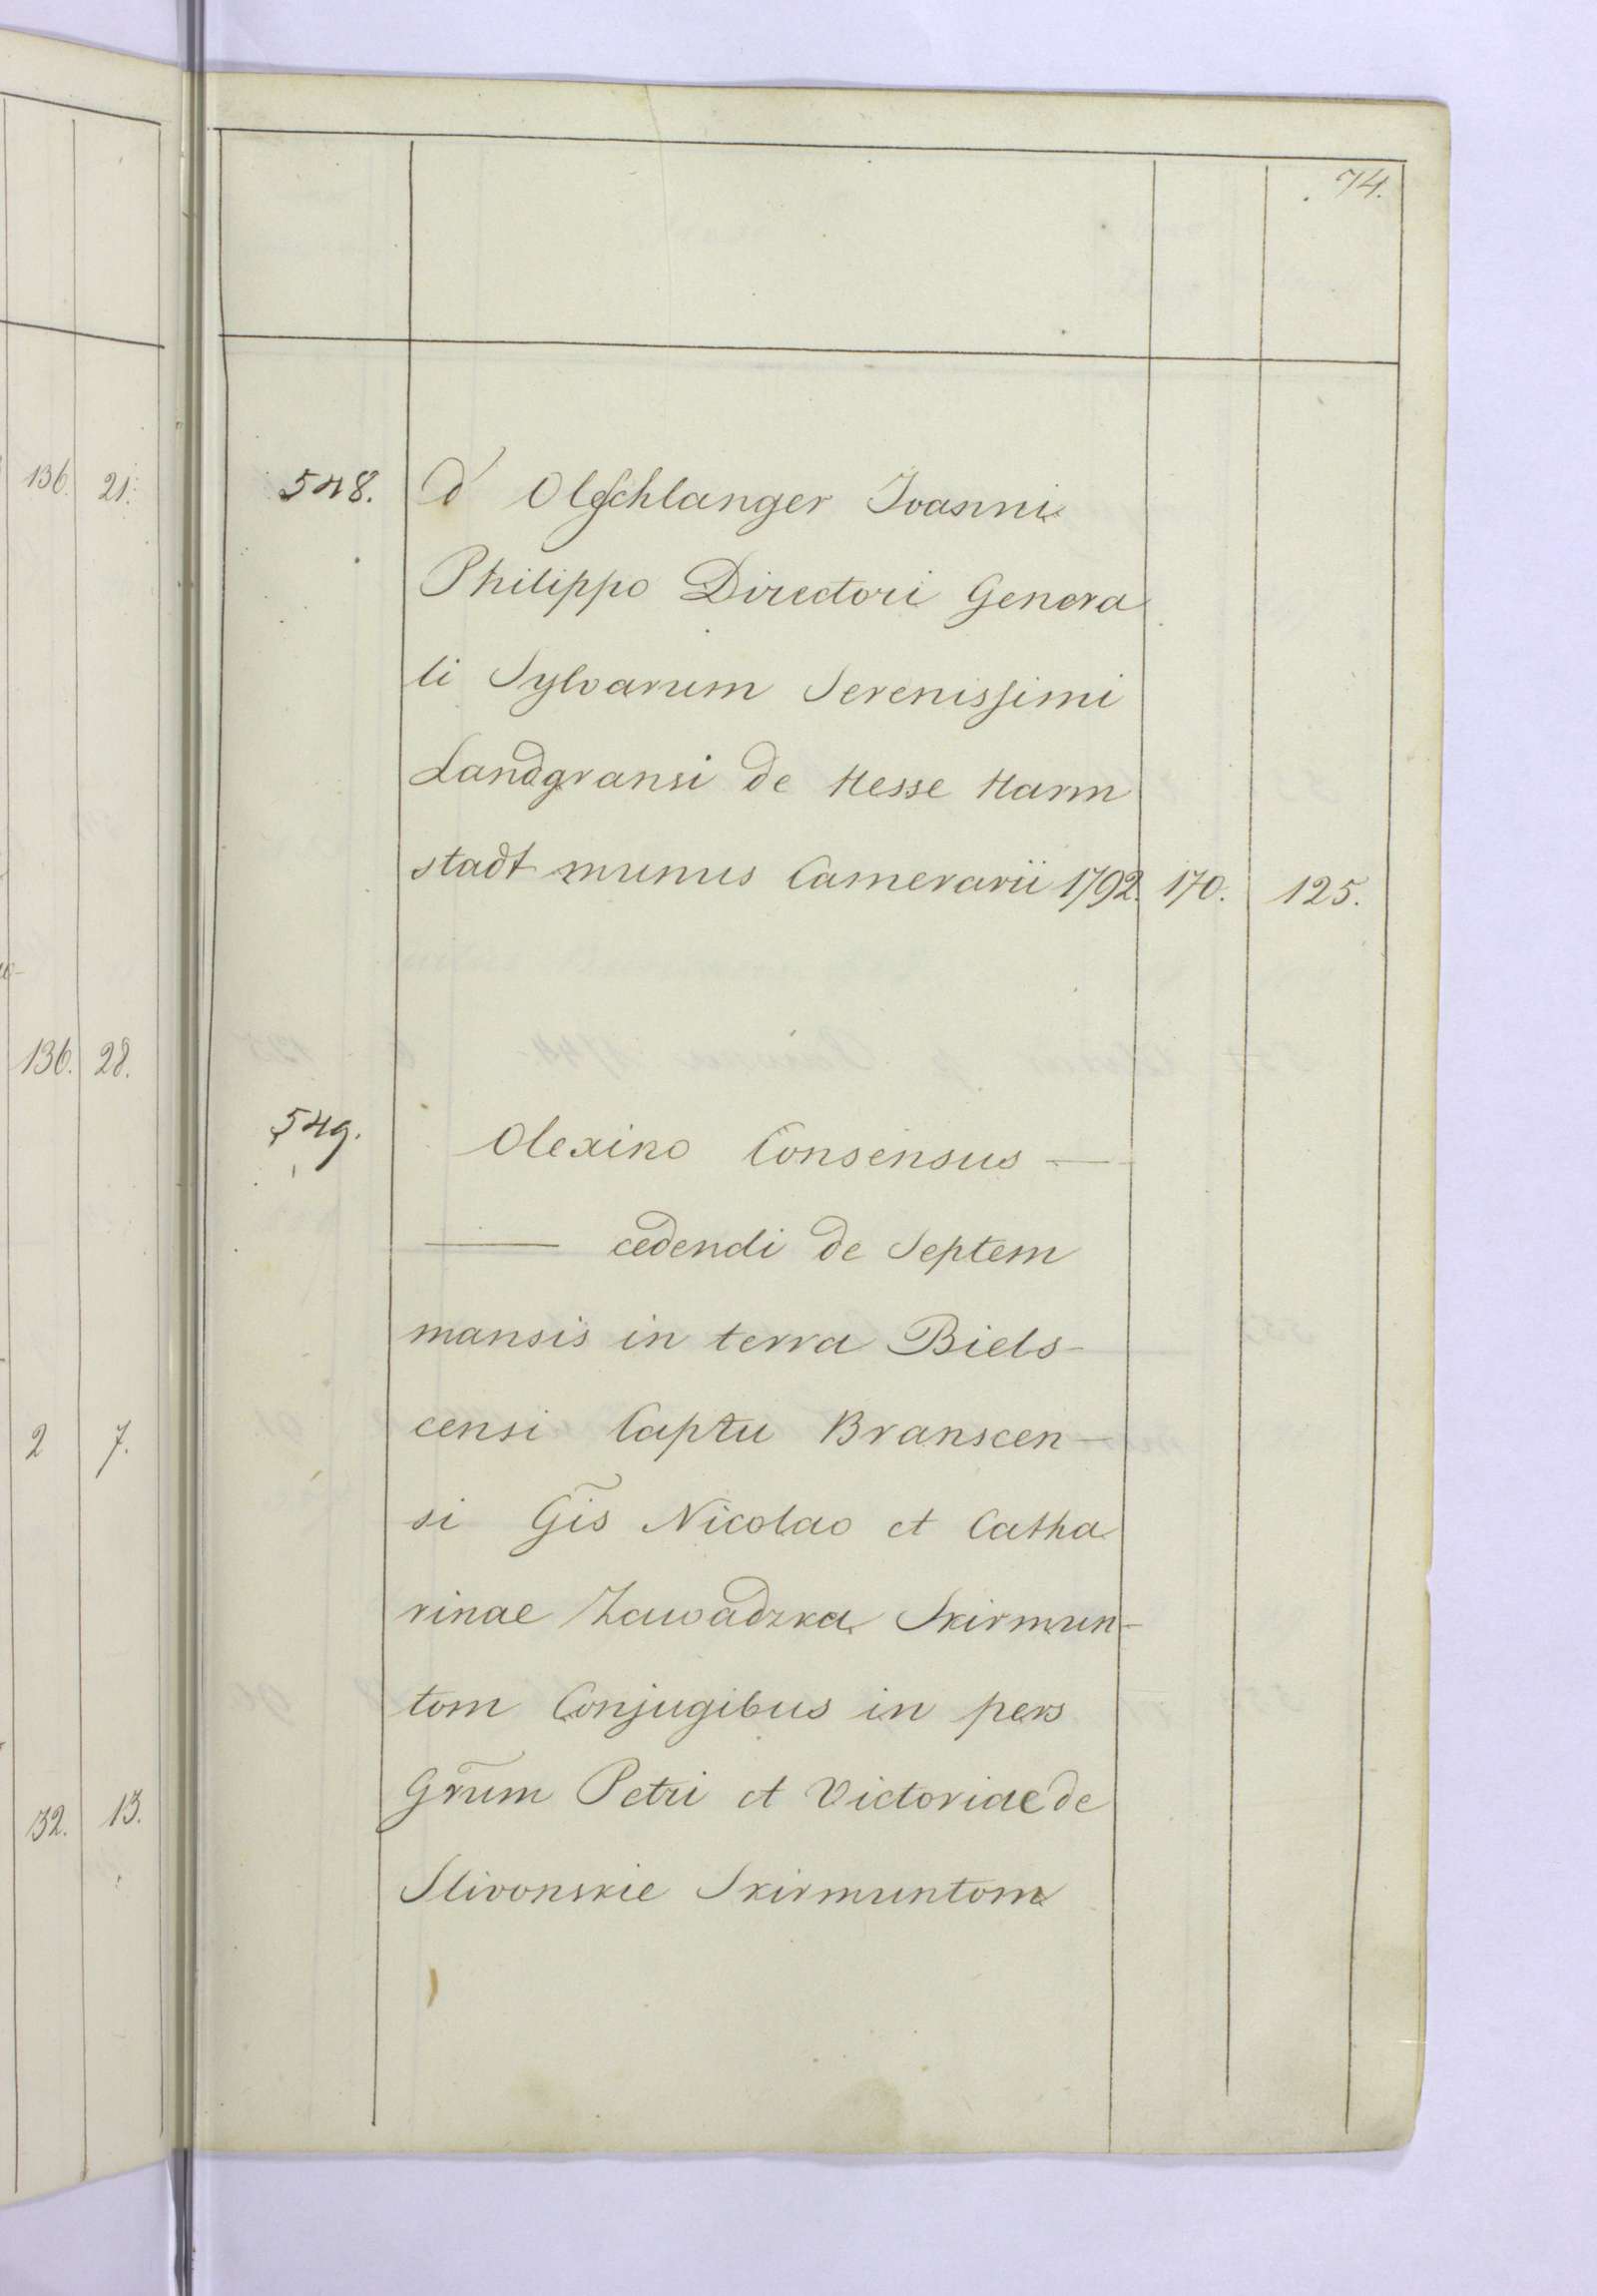 74.
136. 21.
548. d' Olschlanger Joanni
Philippo Directori Genera
li Sylvarum Serenissimi
Landgransi de Hesse Harm
stadt munus Camerarii 1792. 170. 125.
136. 28.
549. Olexino Consensus —
— cedendi de Septem
mansis in terra Biels-
censi Captu Branscen-
2 7.
si G̃is Nicolao et Catha
rinae Zawadzka Skirmun-
tom Conjugibus in pers
Gr̃um Petri et Victoriae de
132. 13.
Slivonskie Skirmuntom